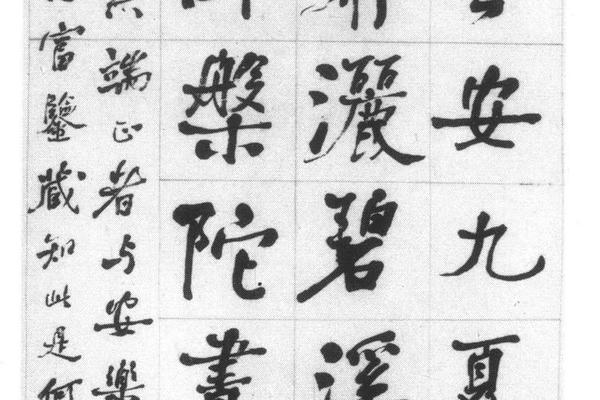 安九夏
灑碧溪
槃陀書
端正者与安樂
富鑒藏知此是何